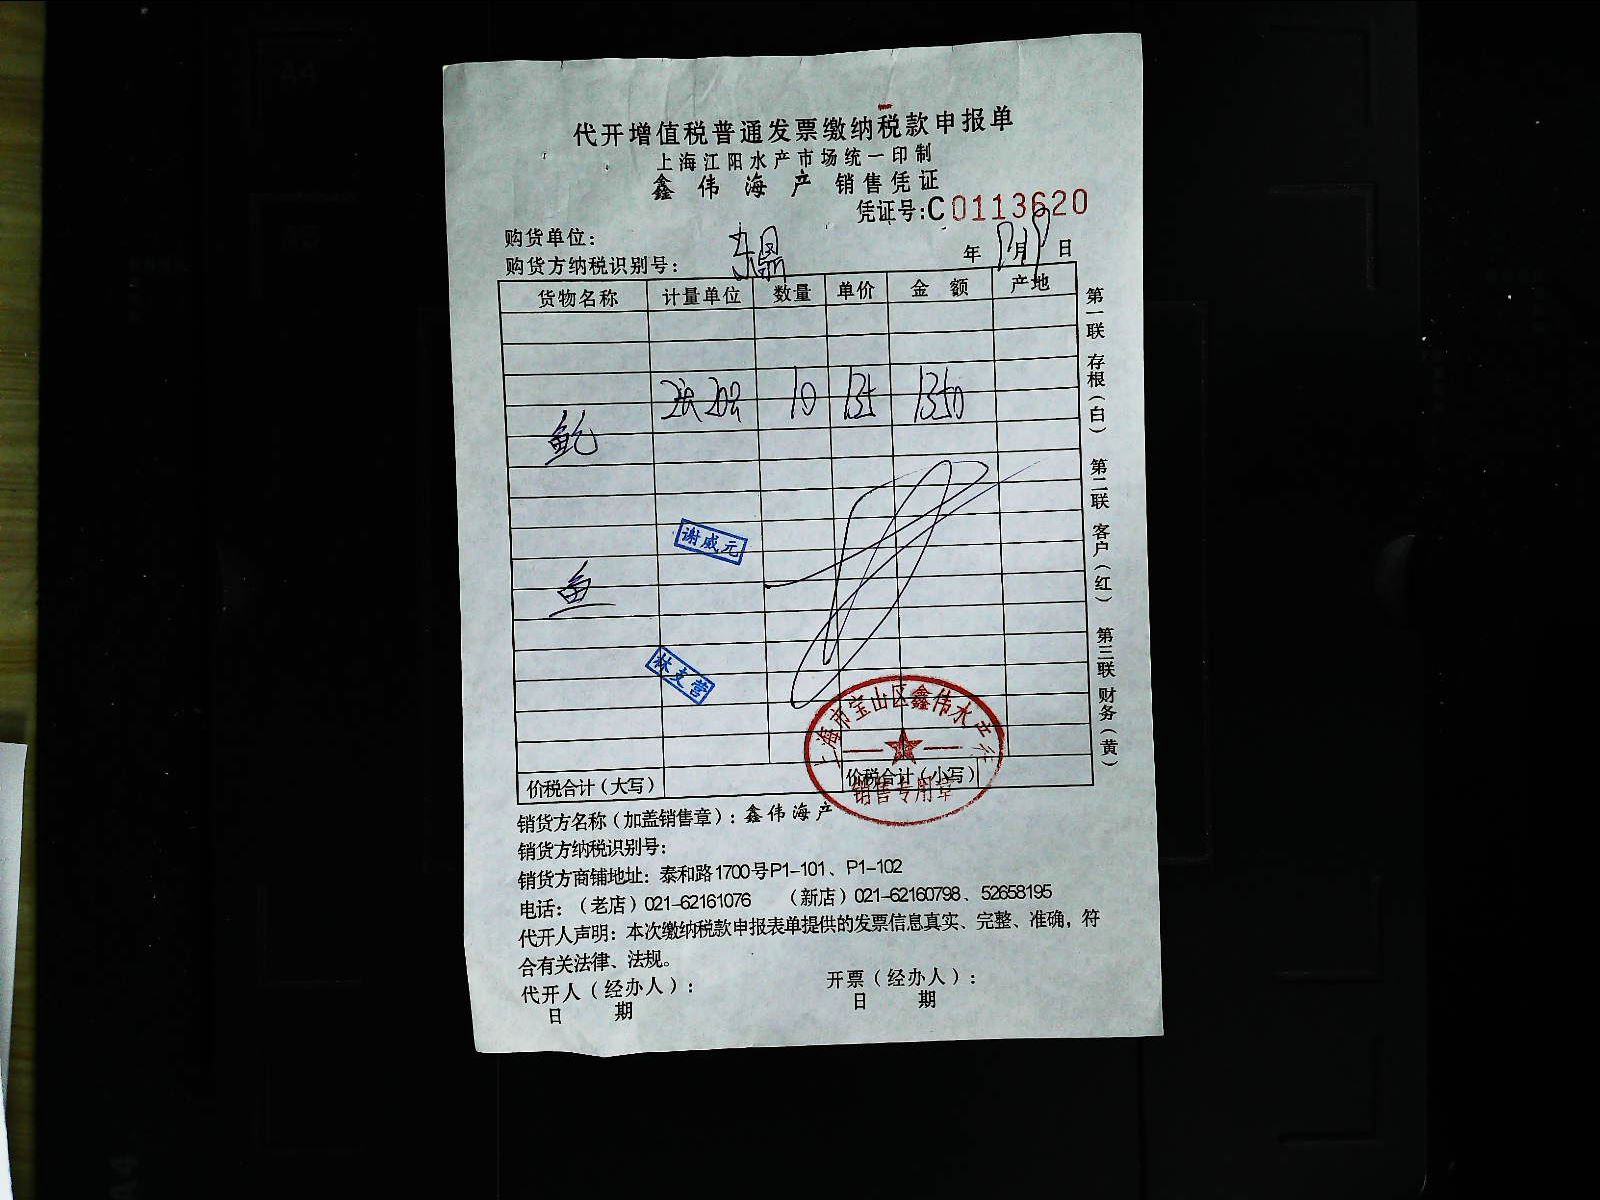 代开增值税普通发票缴纳税款申报单
上海江阳水产市场统一印制
鑫伟海产 销售凭证
凭证号:C0113620
购货单位:
购货方纳税识别号:
年 月 日
货物名称 计量单位 数量 单价 金额 产地
10 135 1350
鲍
谢威元
鱼
林支营
上海市宝山区鑫伟水产行
销售专用章
价税合计(大写) 价税合计(小写)
销货方名称(加盖销售章):鑫伟海产
销货方纳税识别号:
销货方商铺地址:泰和路1700号P1-101、P1-102
电话:(老店)021-62161076 (新店)021-62160798、52658195
代开人声明:本次缴纳税款申报表单提供的发票信息真实、完整、准确,符
合有关法律、法规。
代开人(经办人): 开票(经办人):
日 期 日 期
第一联 存根(白) 第二联 客户(红) 第三联 财务(黄)